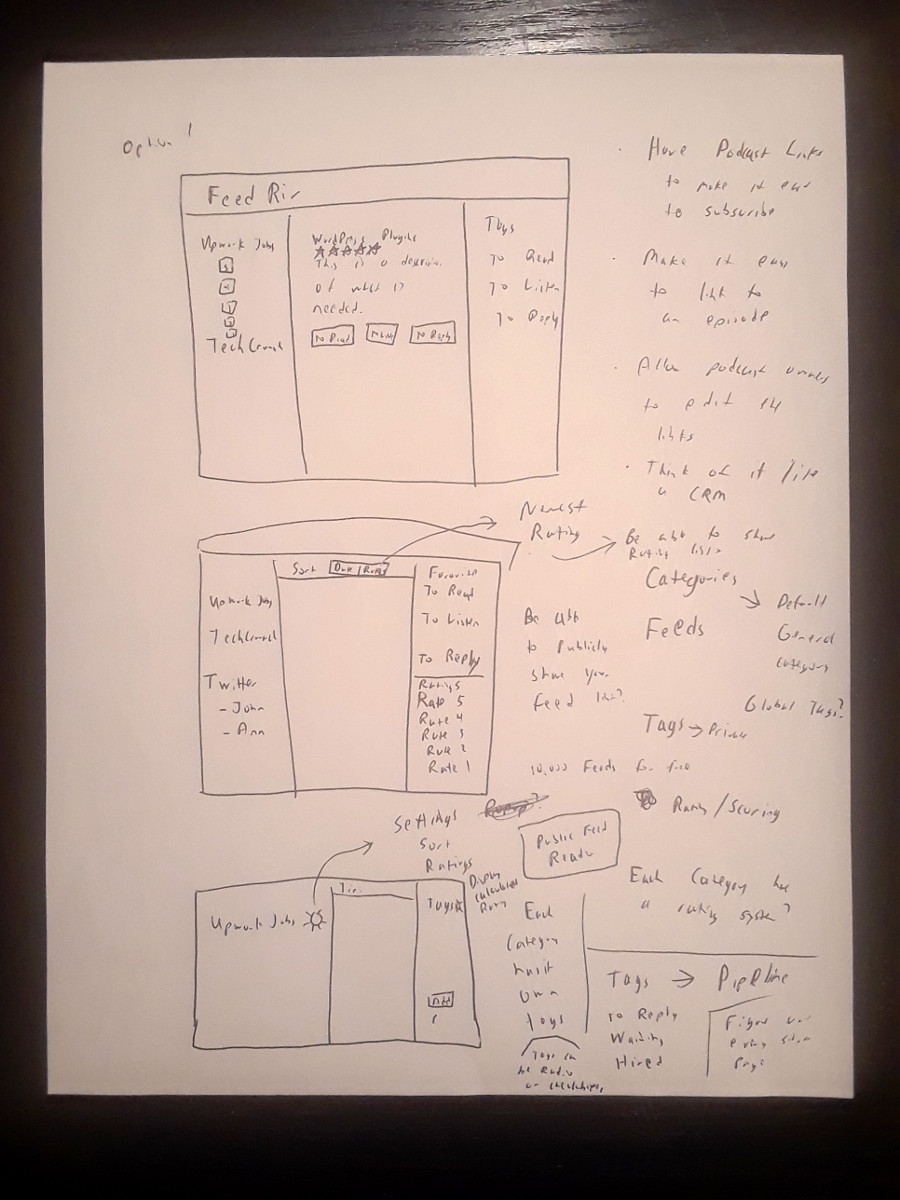 Option 1
Feed Rir
Upwork Jobs
5
4
3
2
TechCrunch
WordPress Plugins
This is a
of what is
needed.
To Read
To Reply
Tags
To Read
To Listen
To Reply
· Have Podcast Links
to make it easy
to subscribe
· Make it easy
to link to
an episode
· Allow podcast owners
to edit the
links
· Think of it like
a CRM
Newest
Rating
Be able to share
Rating lists
Sort Date Rating
Upwork Jobs
TechCrunch
Twitter
- John
- Ann
Favorite
To Read
To Listen
To Reply
Ratings
Rate 5
Rate 4
Rate 3
Rate 2
Rate 1
Be able
to Publicly
share your
feed list?
10,000 Feeds for free
Categories
Default
General
Category
Feeds
Global Tags?
Tags → Private
Rank / Scoring
Each Category has
a rating system?
Settings
Sort
Ratings
Public Feed
Reader
Upwork Jobs
Tags
Display
calculated
Add
Each
Category
has it
own
tags
Tags can
be Radio
or checkboxes
Tags → Pipeline
To Reply
Waiting
Hired
Figure out
page